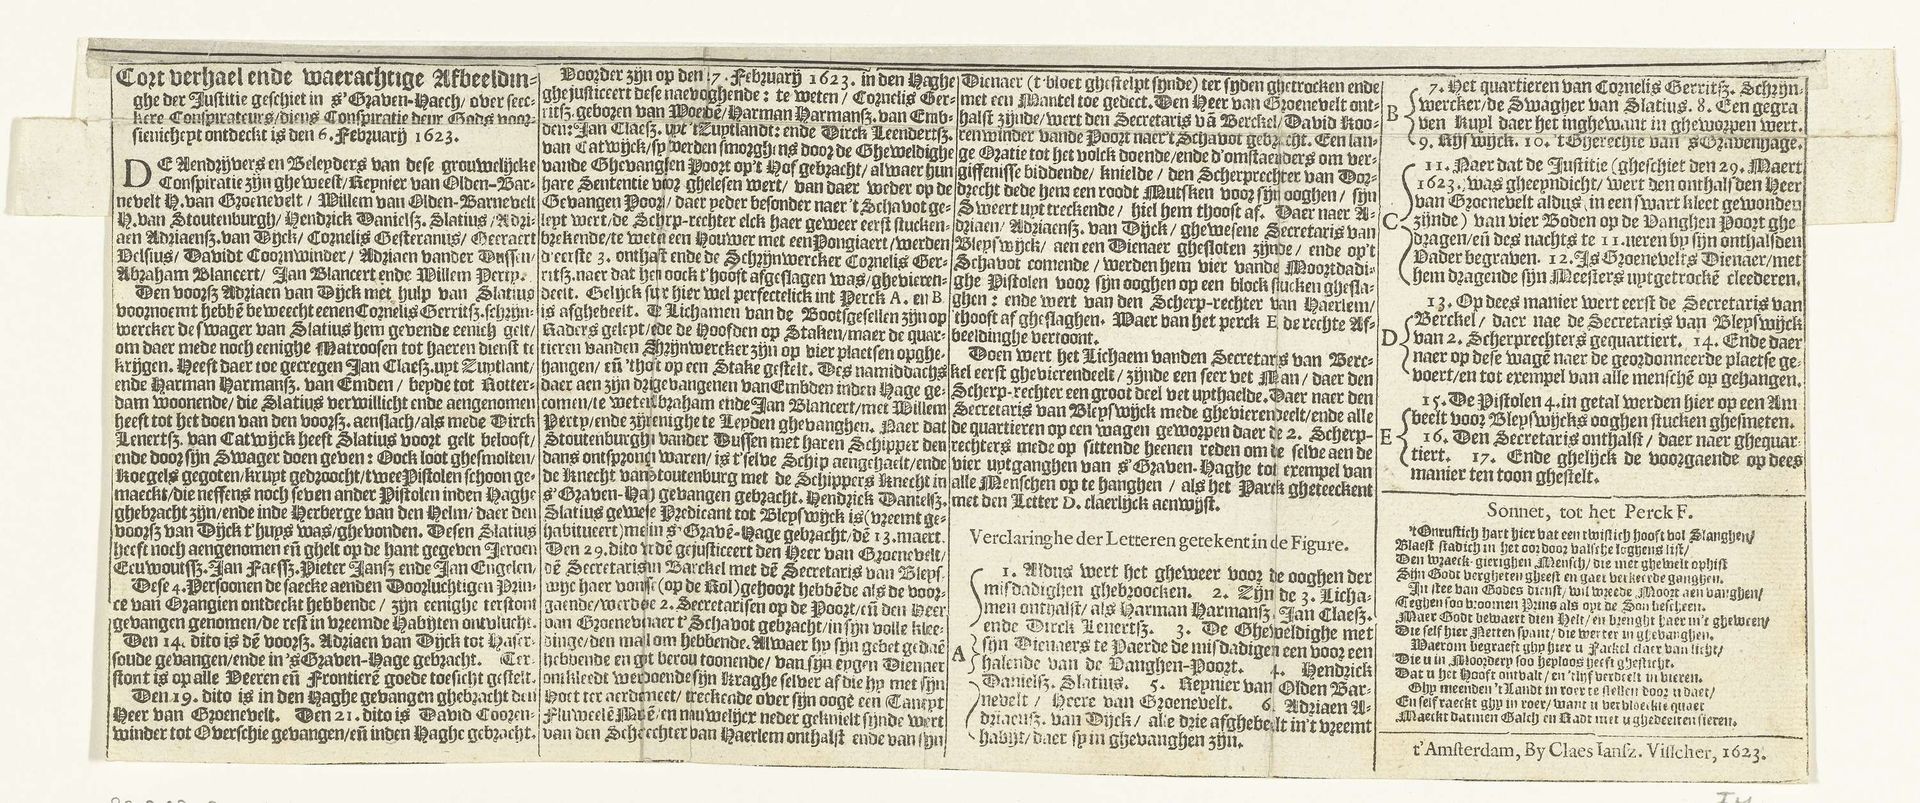 Cort verhael ende waerachtige Afbeeldin-
ghe der Justitie geschiet in s'Graven-Haech / over seec-
kere Conspirateurs / diens Conspiratie deur Gods voor-
sienicheyt ontdeckt is den 6. Februarij 1623.
DE Aendrijvers en Beleyders van dese grouwelijcke
Conspiratie zijn gheweest / Reynier van Olden-Bar-
nevelt H. van Groenevelt / Willem van Olden-Barnevelt
H. van Stoutenburgh / Hendrick Danielsz. Slatius / Adri-
aen Adriaensz. van Dyck / Cornelis Gesteranus / Geeraert
Velsius / Davidt Coornwinder / Adriaen vander Dussen /
Abraham Blancert / Jan Blancert ende Willem Perty.
Den voorsz Adriaen van Dijck met hulp van Slatius
voornoemt hebbē beweecht eenen Cornelis Gerritsz. schrijn-
wercker de swager van Slatius hem gevende eenich gelt /
om daer mede noch eenighe Matroosen tot haeren dienst te
krijgen. Heeft daer toe gecregen Jan Claesz. uyt Zuytlant /
ende Harman Harmansz. van Emden / beyde tot Rotter-
dam woonende / die Slatius verwillicht ende aengenomen
heeft tot het doen van den voorsz. aenslach / als mede Dirck
Lenertsz. van Catwijck heeft Slatius voort gelt belooft /
ende door sijn Swager doen geven : Oock loot ghesmolten /
Koegels gegoten / kruyt gedroocht / twee Pistolen schoon ge-
maeckt / die neffens noch seven ander Pistolen inden Haghe
ghebracht zijn / ende inde Herberge van den Helm / daer den
voorsz van Dijck t'huys was / ghevonden. Desen Slatius
heeft noch aengenomen eñ ghelt op de hant gegeven Jeroen
Ecuwoutsz. Jan Faessz. Pieter Jansz ende Jan Engelen /
Dese 4. Persoonen de saecke aenden Doorluchtigen Prin-
ce van Orangien ontdeckt hebbende / zijn eenighe terstont
gevangen genomen / de rest in vreemde Habijten ontvlucht.
Den 14. dito is dē voorsz. Adriaen van Dijck tot Haser-
soude gevangen / ende in 'sGraven-Hage gebracht. Ter-
stont is op alle Veeren eñ Frontierē goede toesicht gestelt.
Den 19. dito is in den Haghe gevangen ghebracht den
Heer van Groenevelt. Den 21. dito is David Cooren-
winder tot Overschie gevangen / eñ inden Haghe gebracht.
Voorder zijn op den 27. Februarij 1623. in den Haghe
ghejusticeert dese naevolghende : te weten / Cornelis Ger-
ritsz. geboren van Woerdē / Harman Harmansz. van Emb-
den : Jan Claesz. uyt 'tZuytlandt : ende Dirck Leendertsz.
van Catwijck / sy werden smorghens door de Gheweldighe
vande Ghevanghen Poort op't Hof gebracht / alwaer hun
hare Sententie voor ghelesen wert / van daer weder op de
Gevangen Poort / daer yeder besonder naer 't Schavot ge-
leyt wert / de Scherp-rechter elck haer geweer eerst stucken-
brekende / te weten een Houwer met een Pongiaert / werden
d'eerste 3. onthalst ende de Schrijnwercker Cornelis Ger-
ritsz. naer dat hen oock t'hooft afgeslagen was / ghevieren-
deelt. Gelijck sulx hier wel perfectelick int Perck A. en B
is afghebeelt. De Lichamen van de Bootsgesellen zijn op
Raders geleyt / ende de Hoofden op Staken / maer de quar-
tieren vanden Schrijnwercker zijn op vier plaetsen opghe-
hangen / eñ 'thooft op een Stake gestelt. Des namiddachs
daer aen zijn drie gevangenen van Embden inden Hage ge-
comen / te weten Abraham ende Jan Blancert / met Willem
Perty / ende zijn eenighe te Leyden ghevanghen. Naer dat
Stoutenburgh en vander Dussen met haren Schipper den
dans ontsprongen waren / is t'selve Schip aengehaelt / ende
de Knecht van Stoutenburg met de Schippers Knecht in
s'Graven-Hage gevangen gebracht. Hendrick Danielsz.
Slatius gewese Predicant tot Bleyswijck is (vreemt ge-
habitueert) mede in s'Gravē-Hage gebracht / dē 13. maert.
Den 29. dito wrdē gejusticeert den Heer van Groenevelt /
dē Secretaris van Barckel met dē Secretaris van Bleys-
wijc haer vonnisse (op de Rol) gehoort hebbēde als de voor-
gaende / werden de 2. Secretarisen op de Poort / eñ den Heer
van Groenevelt naer t' Schavot gebracht / in sijn volle klee-
dinge / den mantel om hebbende. Alwaer hy sijn gebet gedaē
hebbende en groot berou toonende / van sijn eygen Dienaer
ontkleedt werdende sijn Kraghe selver af die hy met sijn
Hoet ter aerden smeet / treckende over sijn ooge een Tanept
Fluweelē Mutsē / en nauwelijcx neder geknielt sijnde wert
van den Scherprechter van Haerlem onthalst ende van sijn
Dienaer (t'bloet ghestelpt sijnde) ter syden ghetrocken ende
met een Mantel toe gedect. Den Heer van Groenevelt ont-
halst zijnde / wert den Secretaris vā Berckel / David Koo-
renwinder vande Poort naer't Schavot gebracht. Een lan-
ge Oratie tot het volck doende / ende d'omstaenders om ver-
giffenisse biddende / knielde / den Scherprechter van Dor-
drecht dede hem een roodt Mutsken voor sijn ooghen / sijn
Sweert uyt treckende / hiel hem thooft af. Daer naer A-
driaen / Adriaensz. van Dijck / ghewesene Secretaris van
Bleyswijck / aen een Dienaer ghesloten zijnde / ende op't
Schavot comende / werden hem vier vande Moortdadi-
ghe Pistolen voor sijn ooghen op een block stucken ghesla-
ghen : ende wert van den Scherp-rechter van Haerlem /
'thooft af gheslaghen. Waer van het perck E de rechte Af-
beeldinghe vertoont.
Doen wert het Lichaem vanden Secretaris van Berc-
kel eerst ghevierendeelt / zijnde een seer vet Man / daer den
Scherp-rechter een groot deel vet upthaelde. Daer naer den
Secretaris van Bleyswijck mede ghevierendeelt / ende alle
de quartieren op een wagen geworpen daer de 2. Scherp-
rechters mede op sittende heenen reden om de selve aen de
vier uytganghen van s'Graven-Haghe tot exempel van
alle Menschen op te hanghen / als het Parck gheteeckent
met den Letter D. claerlijck aenwijst.
Verclaringhe der Letteren getekent in de Figure.
A
1. Aldus wert het gheweer voor de ooghen der
misdadighen ghebroocken. 2. Zijn de 3. Licha-
men onthalst / als Harman Harmansz. Jan Claesz.
ende Dirck Lenertsz. 3. De Gheweldighe met
sijn Dienaers te Paerde de misdadigen een voor een
halende van de Vanghen-Poort. 4. Hendrick
Danielsz. Slatius. 5. Reynier van Olden Bar-
nevelt / Heere van Groenevelt. 6. Adriaen A-
driaensz. van Dijck / alle drie afghebeelt in't vreemt
habijt / daer sy in ghevanghen zijn.
B
7. Het quartieren van Cornelis Gerritsz. Schrijn-
wercker / de Swagher van Slatius. 8. Een gegra-
ven Kuyl daer het inghewant in gheworpen wert.
9. Rijswijck. 10. 'tGherechte van 'sGravenhage.
C
11. Naer dat de Justitie (gheschiet den 29. Maert
1623.) was gheeyndicht / wert den onthalsden Heer
van Groenevelt aldus (in een swart kleet gewonden
zijnde) van vier Boden op de Vanghen Poort ghe-
dragen / eñ des nachts te 11. ueren by sijn onthalsden
Vader begraven. 12. Is Groenevelts Dienaer / met
hem dragende sijn Meesters uytgetrockē cleederen.
D
13. Op dees manier wert eerst de Secretaris van
Berckel / daer nae de Secretaris van Bleyswijck
van 2. Scherprechters gequartiert. 14. Ende daer
naer op dese wagē naer de geordonneerde plaetse ge-
voert / en tot exempel van alle menschē op gehangen.
E
15. De Pistolen 4. in getal werden hier op een Am
beelt voor Bleyswijcks ooghen stucken ghesmeten.
16. Den Secretaris onthalst / daer naer ghequar-
tiert. 17. Ende ghelijck de voorgaende op dees
manier ten toon ghestelt.
Sonnet, tot het Perck F.
'tOnrustich hart hier vat een twistich hooft vol Slanghen /
Blaest stadich in het oor door valsche loghens list /
Den wraeck-gierighen Mensch / die met ghewelt ophist
Sijn Godt vergheten gheest en gaet verkeerde ganghen.
In stee van Godes dienst / wil wreede Moort aen vanghen /
Teghen soo vroomen Prins als oyt de Son bescheen.
Maer Godt bewaert dien Helt / en brenght haer in't gheween /
Die self hier Netten spant / die wert er in ghevanghen.
Waerom begraeft ghy hier u Fackel claer van licht /
Die u in Moordery soo heyloos heeft ghesticht.
Dat u het Hooft ontvalt / en 'tlijf verdeelt in vieren.
Ghy meenden 't Landt in roer te stellen door u daet /
En self raeckt ghy in roer / want u verbloemte quaet
Maeckt datmen Galch en Radt met u ghebeenten sieren.
t'Amsterdam, By Claes Iansz. Visscher, 1623.